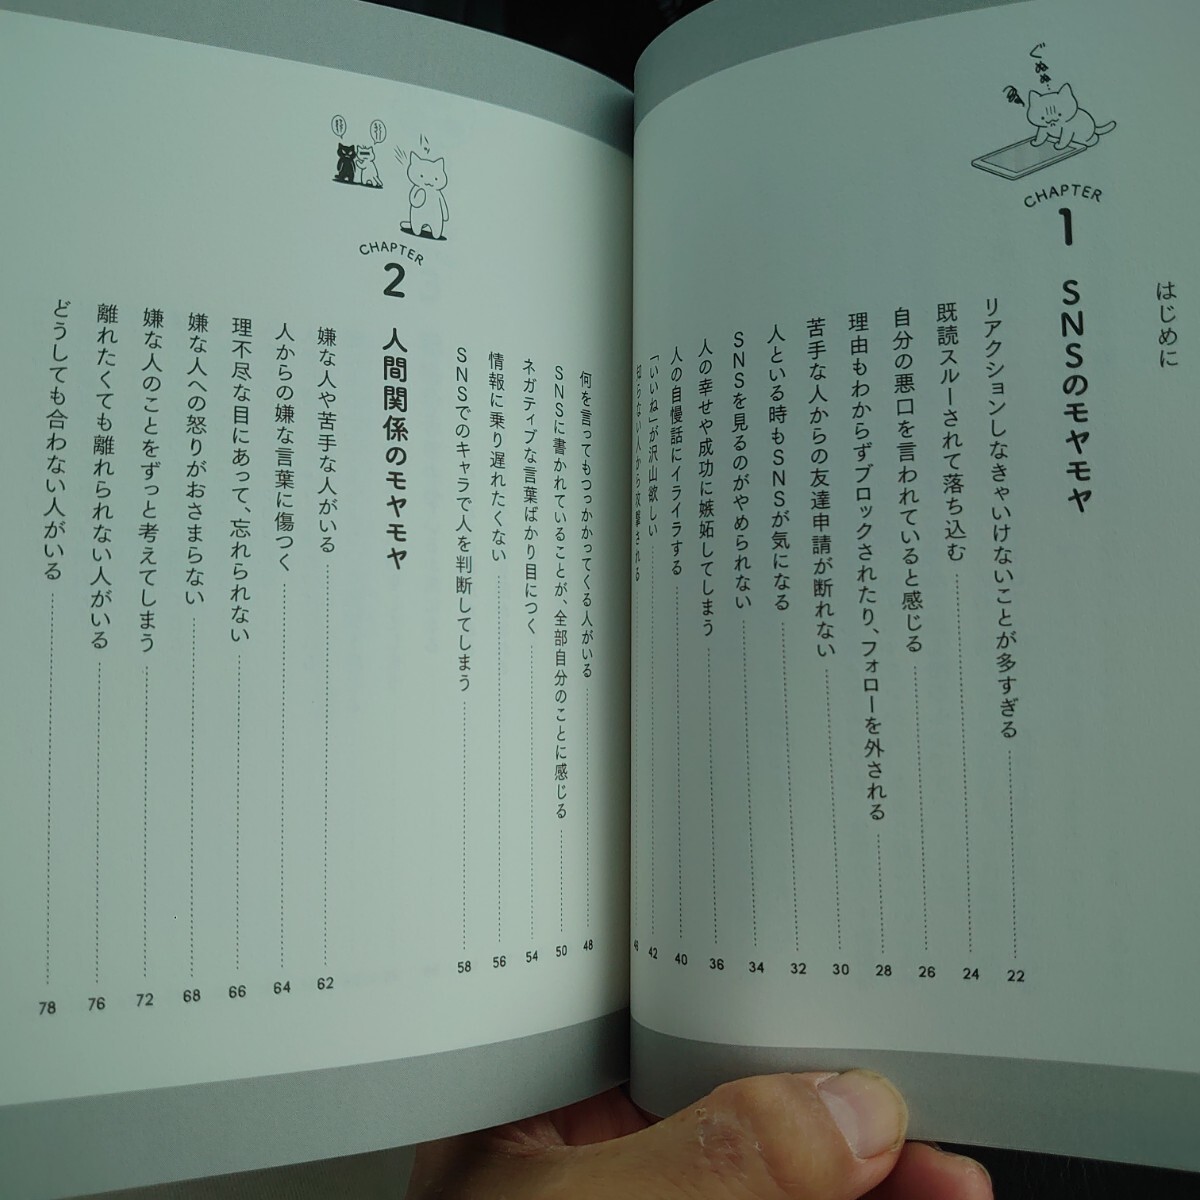 はじめに
ぐぬぬ…
CHAPTER
1 SNSのモヤモヤ
リアクションしなきゃいけないことが多すぎる 22
既読スルーされて落ち込む 24
自分の悪口を言われていると感じる 26
理由もわからずブロックされたり、フォローを外される 28
苦手な人からの友達申請が断れない 30
人といる時もSNSが気になる 32
SNSを見るのがやめられない 34
人の幸せや成功に嫉妬してしまう 36
人の自慢話にイライラする 40
「いいね」が沢山欲しい 42
知らない人から攻撃される 46
何を言ってもつっかかってくる人がいる 48
SNSに書かれていることが、全部自分のことに感じる 50
ネガティブな言葉ばかり目につく 54
情報に乗り遅れたくない 56
SNSでのキャラで人を判断してしまう 58
CHAPTER
2 人間関係のモヤモヤ
嫌な人や苦手な人がいる 62
人からの嫌な言葉に傷つく 64
理不尽な目にあって、忘れられない 66
嫌な人への怒りがおさまらない 68
嫌な人のことをずっと考えてしまう 72
離れたくても離れられない人がいる 76
どうしても合わない人がいる 78